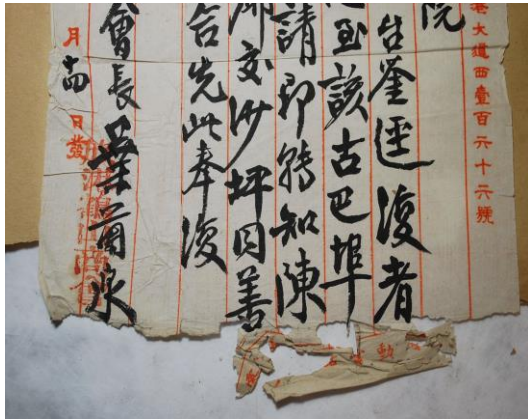 大道西壹百六十六號
院
鉴逕復者
至該古巴埠
請即轉知陳
交沙坪同善
合先此奉復
會長葉蘭泉
月十四日發